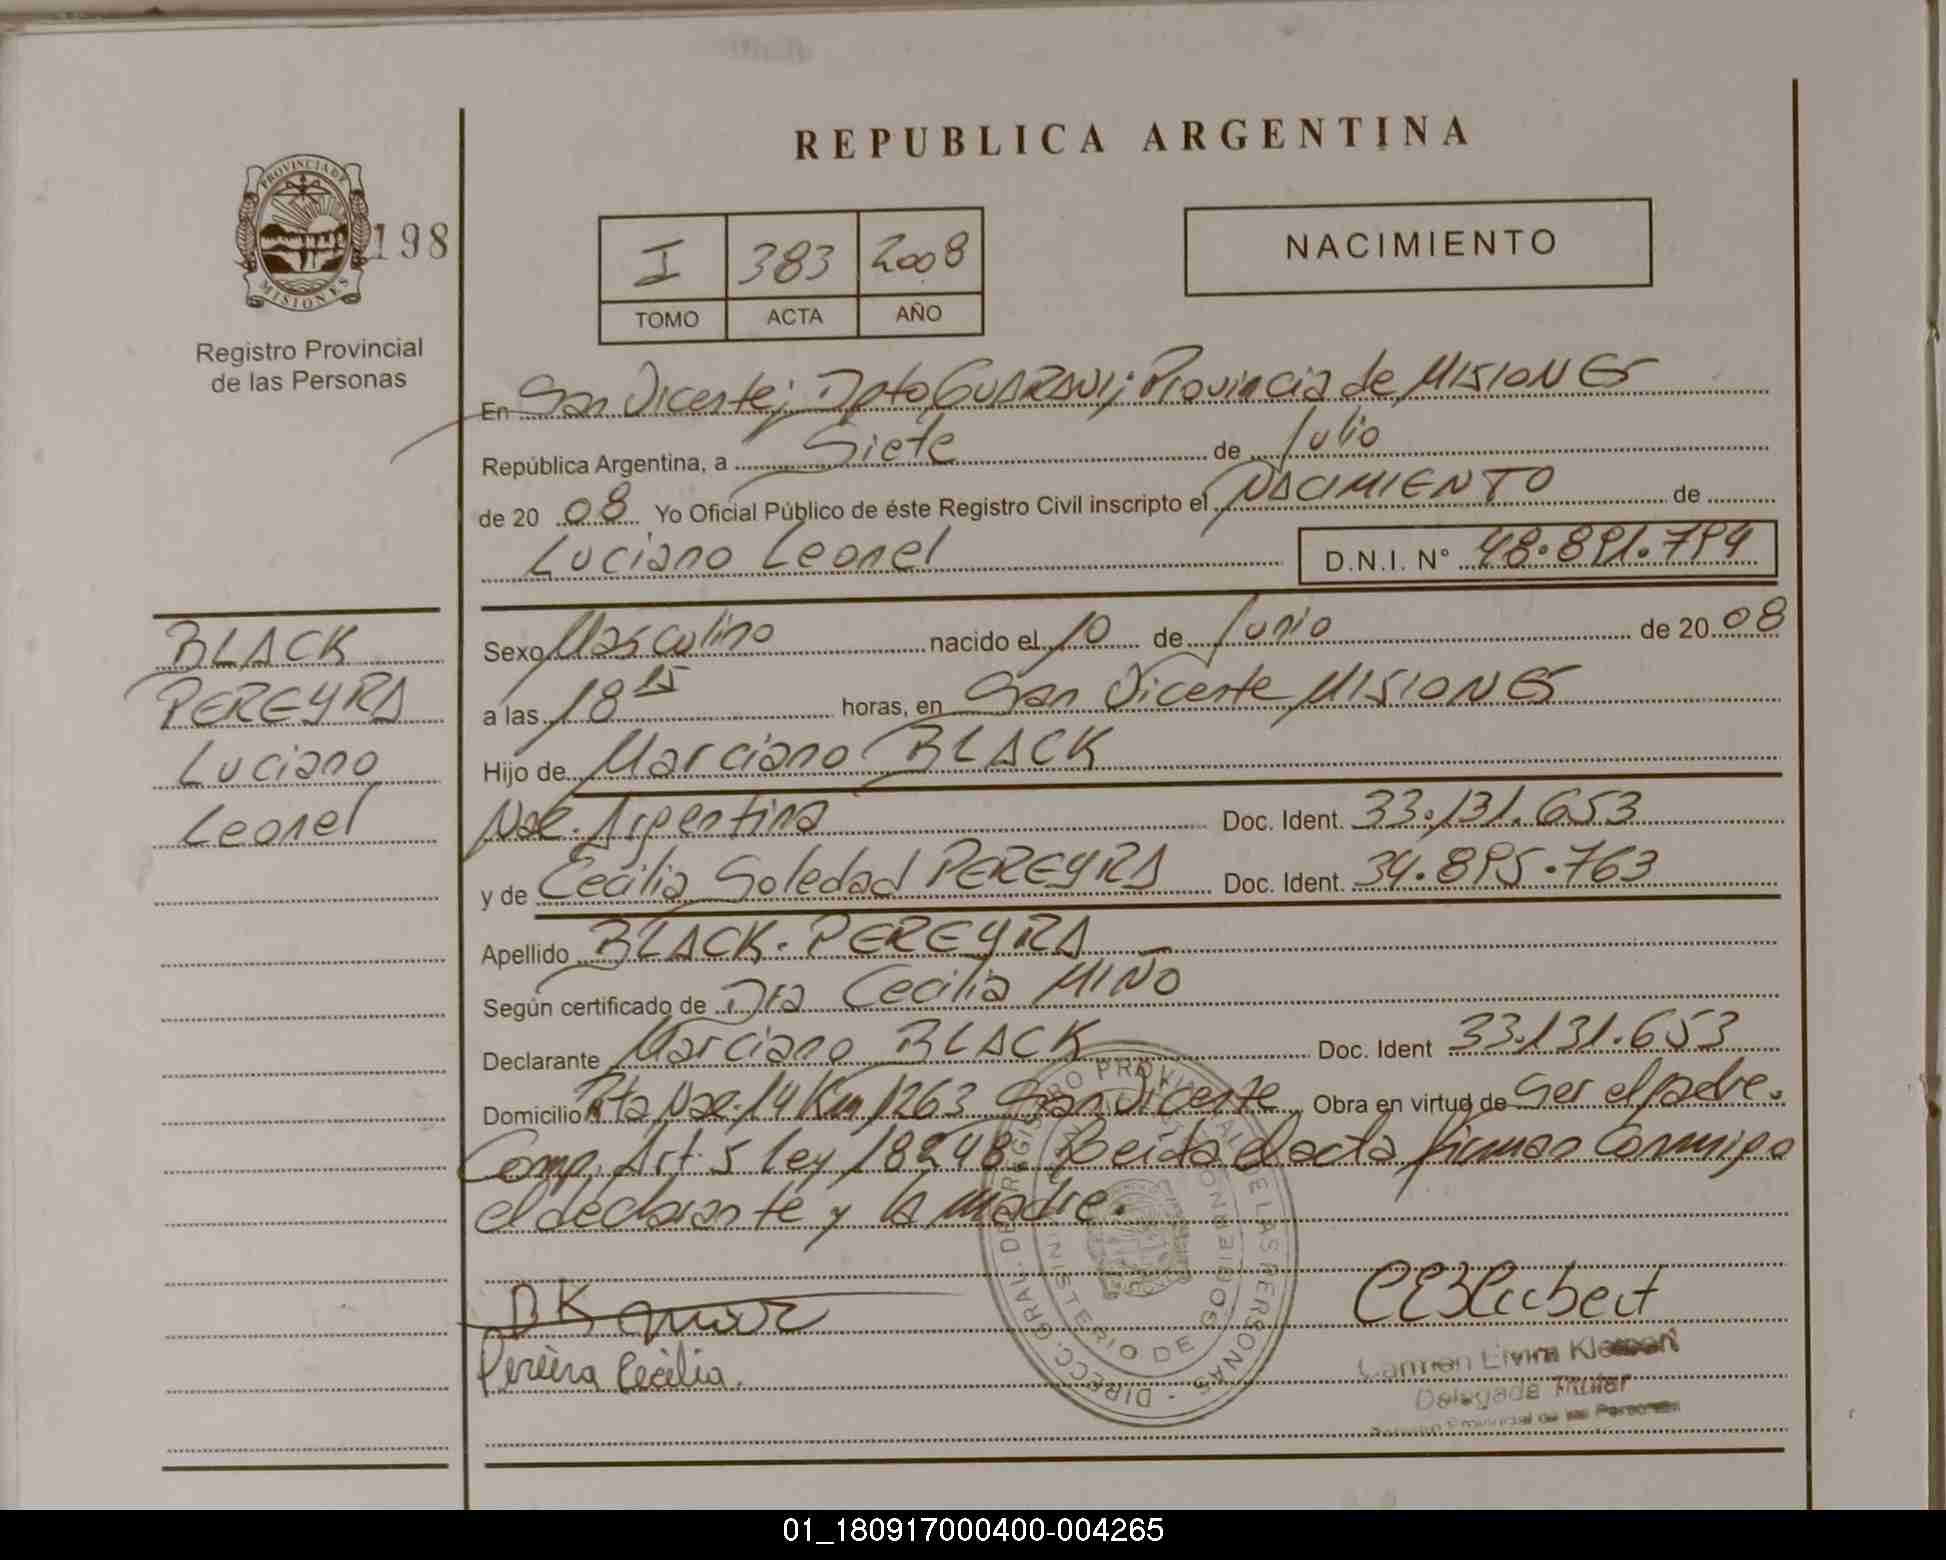 REPUBLICA ARGENTINA
PROVINCIA DE
MISIONES
198
Registro Provincial
de las Personas
I 383 2008
TOMO ACTA AÑO
NACIMIENTO
En San Vicente; Dpto GUARANI; Provincia de MISIONES
República Argentina, a Siete de Julio
de 20 08 Yo Oficial Público de éste Registro Civil inscripto el NACIMIENTO de
Luciano Leonel D.N.I. N° 48.891.794
BLACK
PEREYRA
Luciano
Leonel
Sexo Masculino nacido el 10 de Junio de 20 08
a las 18 15 horas, en San Vicente MISIONES
Hijo de Marciano BLACK
Nac. Argentina Doc. Ident. 33.131.653
y de Cecilia Soledad PEREYRA Doc. Ident. 34.895.763
Apellido BLACK. PEREYRA
Según certificado de Dra Cecilia MIÑO
Declarante Marciano BLACK Doc. Ident 33.131.653
Domicilio Rta Nac. 14 Km 1263 San Vicente Obra en virtud de Ser el padre.
Comp. Art. 5 Ley 18248. Leida el acta firman Conmigo
el declarante y la madre.
DIRECC. GRAL. DE REGISTRO PROVINCIAL DE LAS PERSONAS
MINISTERIO DE GOBIERNO
Pereira Cecilia.
Carmen
Delegada Titular
Provincial de las Personas
01_180917000400-004265